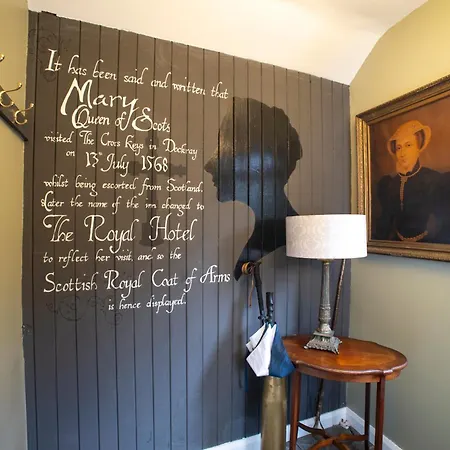 It has been said and written that
Mary
Queen of Scots
visited The Cross Keys in Dockray
on 13th July 1568
whilst being escorted from Scotland.
Later the name of the inn changed to
The Royal Hotel
to reflect her visit, and so the
Scottish Royal Coat of Arms
is hence displayed.